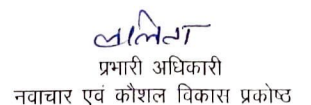 ललिता
प्रभारी अधिकारी
नवाचार एवं कौशल विकास प्रकोष्ठ